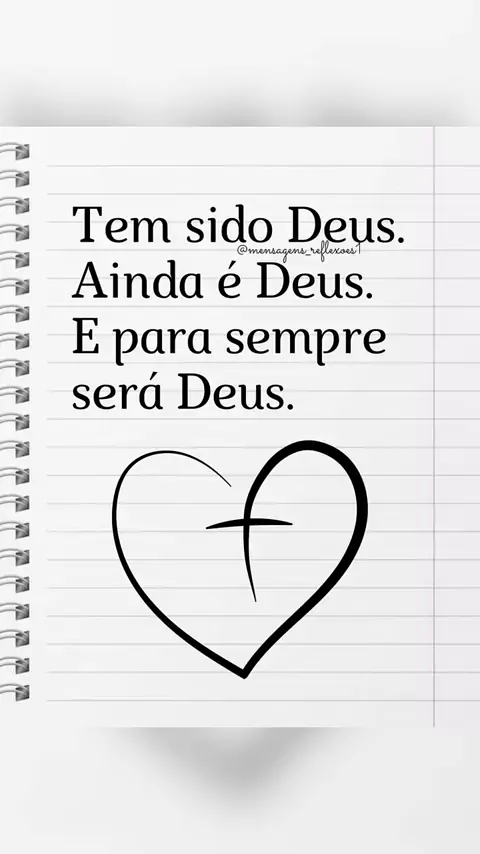 Tem sido Deus.
@mensagens_reflexoes1
Ainda é Deus.
E para sempre
será Deus.